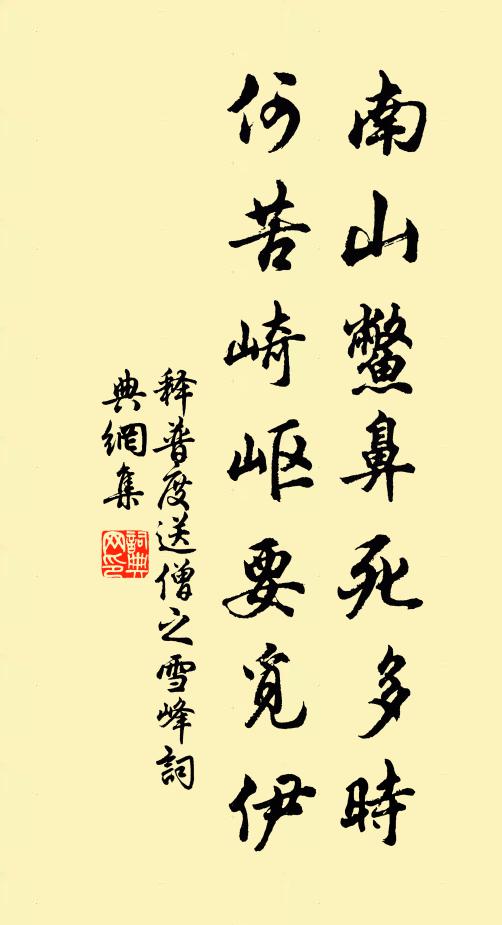 南山鱉鼻死多時
何苦崎岖要覓伊
释普度送僧之雪峰詞
典網集
詞典网印